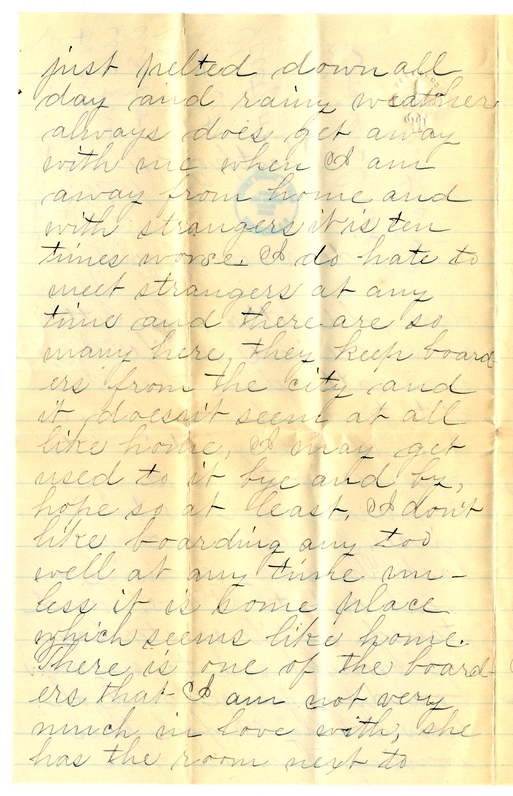 just pelted down all
day and rainy weather
always does get away
with me when I am
away from home and
with strangers it is ten
times worse. I do hate to
meet strangers at any
time and there are so
many here, they keep board
ers from the city and
it doesn't seem at all
like home, I may get
used to it bye and by,
hope so at least, I don't
like boarding any too
well at any time un-
less it is some place
which seems like home.
There is one of the board-
ers that I am not very
much in love with, she
has the room next to